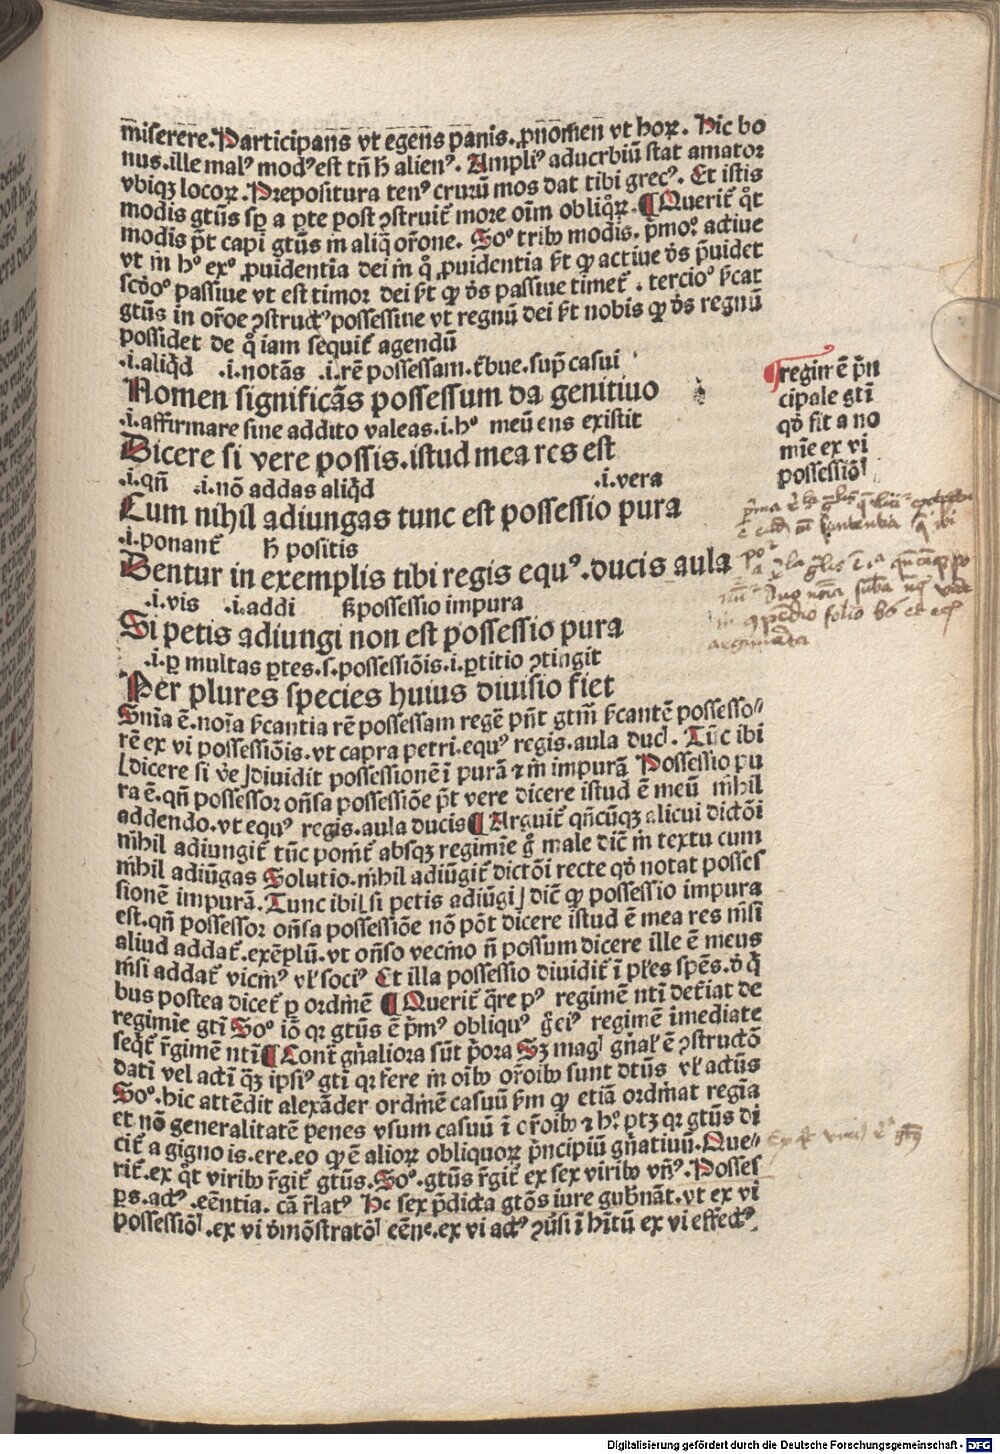 miserere. Participans vt egens panis. ꝓnomen vt hoꝝ. Hic bo
nus. ille malꝰ modꝰ est tn̄ ħ alienꝰ. Ampliꝰ aduerbiū stat amator
vbiqꝫ locoꝝ. Prepositura tenꝰ crurū mos dat tibi grecꝰ. Et istis
modis gtūs sp̄ a ꝑte post ꝯstruit᷑ more oīm obliqͦꝝ. ¶ Querit᷑ qͦt
modis p̄t capi gtūs in aliq̄ or̄one. Soꝰ tribꝰ modis. pͥmoꝰ actiue
vt in hꝰ exꝰ ꝓuidentia dei in qͣ ꝓuidentia ſ̄t ꝙ actiue dꝰs p̄uidet
scd̄oꝰ passiue vt est timor dei ſ̄t ꝙ dꝰs passiue timet᷑. tercioꝰ ſ̄cat
gtūs in or̄oe ꝯstructꝰ possessiue vt regnū dei ſ̄t nobis ꝙ dꝰs regnū
possidet de qͣ iam sequit᷑ agendū
.i. aliqͥd .i. notās .i. rē possessam. t᷑bue. sup̄ casui
Nomen significās possessum da genitiuo
.i. affirmare sine addito valeas .i. hꝰ meū ens existit
Dicere si vere possis. istud mea res est
.i. qn̄ .i. nō addas aliqͥd .i. vera
Cum nihil adiungas tunc est possessio pura
.i. ponant᷑ ħ positis
Dentur in exemplis tibi regis equꝰ. ducis aula
.i. vis .i. addi possessio impura
Si petis adiungi non est possessio pura
.i. ꝑ multas ꝑtes .s. possessiōis .i. ꝑtitio ꝯtingit
Per plures species huius diuisio fiet
Snīa ē. noīa ſ̄cantia rē possessam regē pn̄t gtm̄ ſ̄cantē possesso⸗
rē ex vi possessiōis. vt capra petri. equꝰ regis. aula duc̄. Tūc ibi
[dicere si ve] diuidit possessionē ī purā ⁊ in impurā Possessio pu
ra ē. qn̄ possessor on̄sa possessiōe p̄t vere dicere istud ē meū nihil
addendo. vt equꝰ regis. aula ducis ¶ Arguit᷑ qn̄cūqꝫ alicui dictōi
nihil adiungit᷑ tūc ponit᷑ absqꝫ regimīe gͦ male dic̄ in textu cum
nihil adiūgas Solutio. nihil adiūgit᷑ dictōi recte qd̄ notat posses
sionē impurā. Tunc ibi [si petis adiūgi] dic̄ ꝙ possessio impura
est. qn̄ possessor on̄sa possessiōe nō pōt dicere istud ē mea res nisi
aliud addat᷑. exēplū. vt on̄so vecino n̄ possum dicere ille ē meus
nisi addat᷑ vicinꝰ vl᷑ sociꝰ Et illa possessio diuidit᷑ ī pl᷑es spēs. d̄ q̄
bus postea dicet᷑ ꝑ ordinē ¶ Querit᷑ q̄re pꝰ regimē ntī det᷑iat de
regimīe gtī Soꝰ iō qꝛ gtūs ē pͥmꝰ obliquꝰ gͦ eiꝰ regimē īmediate
seqͥt᷑ r̄gimē ntī ¶ Cont᷑ gn̄aliora sūt pͥora Sꝫ mag᷑ gn̄alꝰ ē ꝯstructō
dati vel actī qͣꝫ ipsiꝰ gtī qꝛ fere in oībꝰ or̄oibꝰ sunt dtūs vl᷑ actūs
Soꝰ. hic attēdit alexāder ordinē casuū pͥm ꝙ etiā ordinat regīa
et nō generalitatē penes vsum casuū ī or̄oibꝰ ⁊ hꝰ ptꝫ qꝛ gtūs di
cit᷑ a gigno is. ere. eo ꝙ ē alioꝝ obliquoꝝ pͥncipiū gn̄atiuū. Que⸗
rit᷑. ex qͦt viribꝰ r̄git᷑ gtūs. Soꝰ. gtūs r̄git᷑ ex sex viribꝰ vn̄ꝰ. Posses
ꝑs. actꝰ. eēntia. cā r̄latꝰ Hᵉ sex p̄dicta gtōs iure gubn̄āt. vt ex vi
possessiōis. ex vi dmōstratōis eēnᵉ. ex vi actꝰ ꝯūsi ī hītū ex vi effectꝰ.
regim̄ ē pͥn
cipale gtī
qd̄ fit a no
mīe ex vi
possessiōis
Digitalisierung gefördert durch die Deutsche Forschungsgemeinschaft - DFG